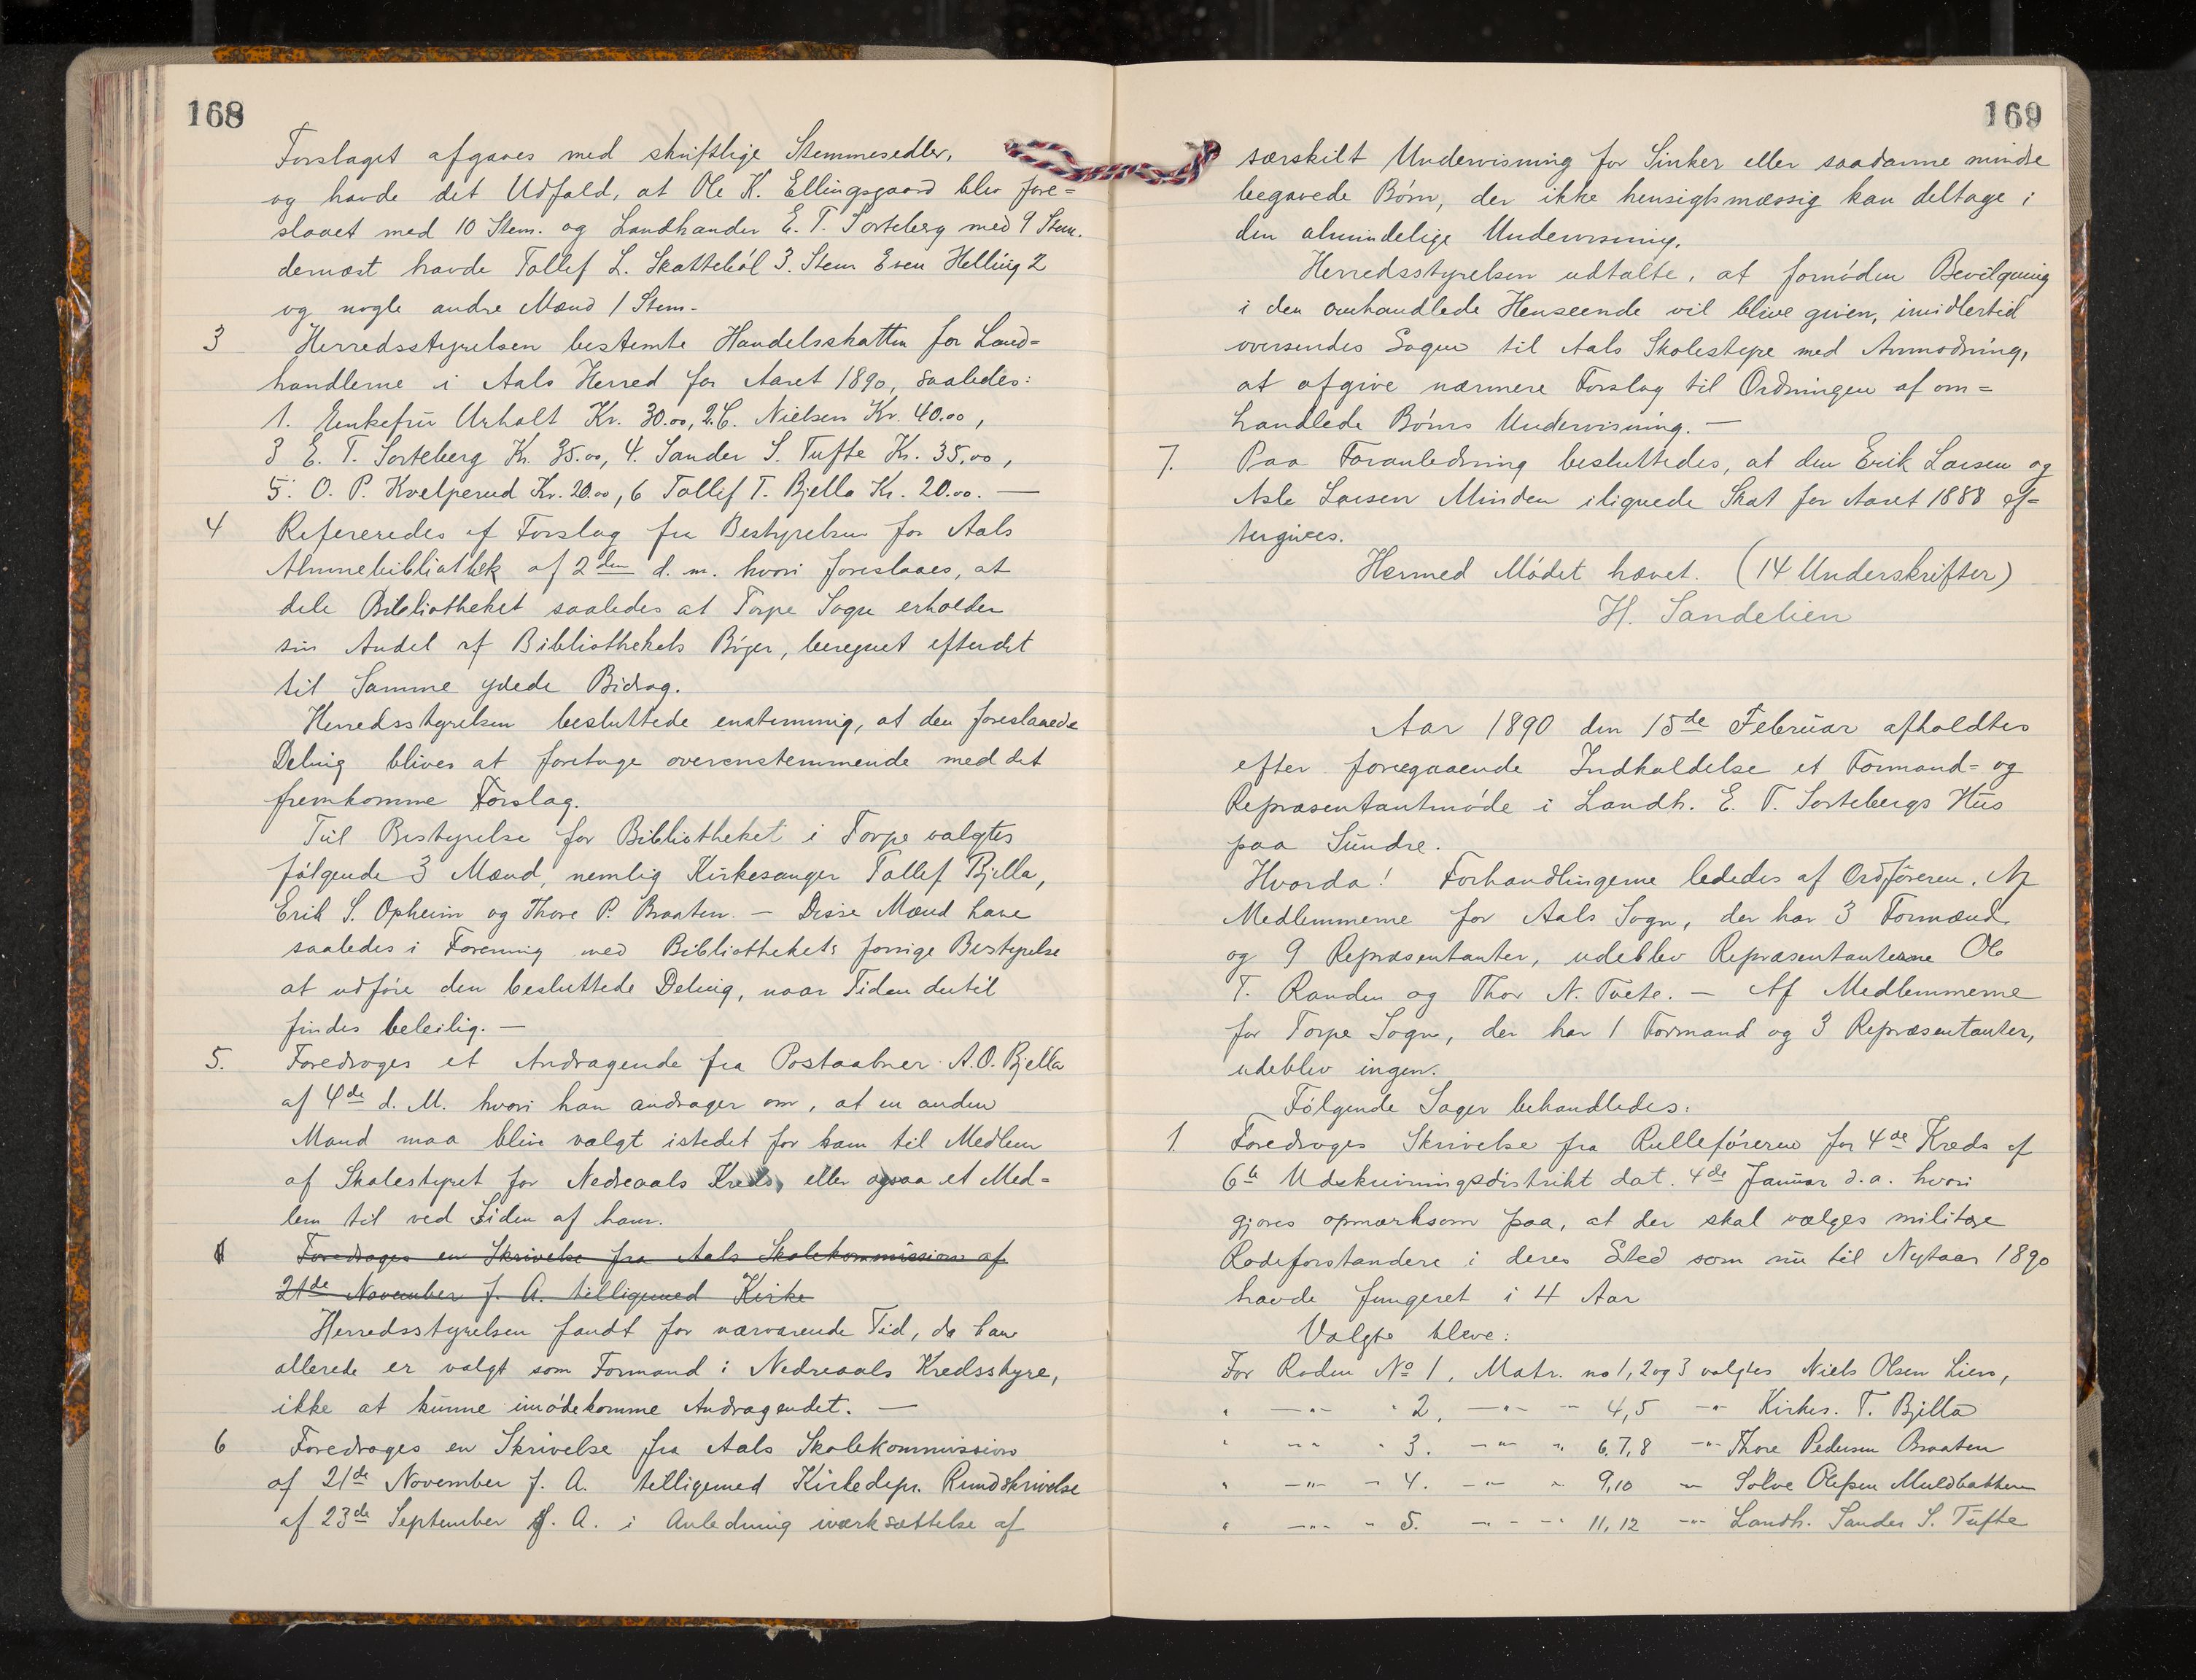 168
Forslaget afgaves med skriftlige Stemmesedler,
og havde det Udfald, at Ole K. Ellingsgaard blev fore=
slaaet med 10 Stem. og Landhander E. T. Sorteberg med 9 Stem.
dernæst havde Tollef L. Skattebøl 3. Stem Even Helling 2
og nogle andre Mænd 1 Stem.-
3 Herredsstyrelsen bestemte Handelsskatten for Land=
handlerne i Aals Herred for Aaret 1890, saaledes:
1. Enkefru Urholt Kr. 30.00, 2. C. Nielsen Kr. 40.00,
3 E. T. Sorteberg Kr. 35.00, 4. Sander S. Tufte Kr. 35.00,
5. O. P. Kvelprud Kr. 20.00, 6 Tollef T. Bjella Kr. 20.00. —
4 Refereredes et Forslag fra Bestyrelsen for Aals
Almuebibliothek af 2den d. m. hvori foreslaaes, at
dele Bibliotheket saaledes at Torpe Sogn erholder
sin Andel af Bibliothekets Bøger, beregnet efter det
til Samme ydede Bidrag.
Herredsstyrelsen besluttede enstemmig, at den foreslaaede
Deling bliver at foretage overensstemmende med det
fremkomme Forslag.
Til Bestyrelse for Bibliotheket i Torpe valgtes
følgende 3 Mænd, nemlig Kirkesanger Tollef Bjella,
Erik S. Opheim og Thore P. Braaten. — Disse Mænd have
saaledes i Forening med Bibliothekets forrige Bestyrelse
at udføre den besluttede Deling, naar Tiden dertil
findes beleilig. —
5. Foredroges et Andragende fra Postaabner A. O. Bjella
af 4de d. M. hvori han andrager om, at en anden
Mand maa blive valgt istedet for ham til Medlem
af Skolestyret for Nedreaals Kreds, eller ogsaa et Med=
lem til ved Siden af ham.
Foredroges en Skrivelse fra Aals Skolekommission af
21de November f. A. tilligemed Kirke
Herredsstyrelsen fandt for nærværende Tid, da han
allerede er valgt som Formand i Nedreaals Kredsstyre,
ikke at kunne imødekomme Andragendet. —
6 Foredroges en Skrivelse fra Aals Skolekommission
af 21de November f. A. tilligemed Kirkedepr. Rundskrivelse
af 23de September f. A. i Anledning iværksættelse af
169
særskilt Undervisning for Sinker eller saadanne mindre
begavede Børn, der ikke hensigtsmæssig kan deltage i
den almindelige Undervisning.
Herredsstyrelsen udtalte, at fornøden Bevilgning
i den omhandlede Henseende vil blive given, imidlertid
oversendes Sagen til Aals Skolestyre med Anmodning,
at afgive nærmere Forslag til Ordningen af om=
handlede Børns Undervisning. —
7. Paa Foranledning besluttedes, at den Erik Larsen og
Asle Larsen Minden ilignede Skat for Aaret 1888 ef=
tergives.
Hermed Mødet hævet. (14 Underskrifter)
H. Sandelien
Aar 1890 den 15de Februar afholdtes
efter foregaaende Indkaldelse et Formand= og
Repræsentantmøde i Landh. E. T. Sortebergs Hus
paa Sundre.
Hvorda! Forhandlingerne lededes af Ordføreren. Af
Medlemmerne for Aals Sogn, der har 3 Formænd
og 9 Repræsentanter, udeblev Repræsentanterne Ole
T. Randen og Thor N. Tvete. — Af Medlemmerne
for Torpe Sogn, der har 1 Formand og 3 Repræsentanter,
udeblev ingen.
Følgende Sager behandledes:
1. Foredroges Skrivelse fra Rulleføreren for 4de Kreds af
6te Udskrivningsdistrikt dat. 4de Januar d. a. hvori
gjøres opmærksom paa, at der skal vælges militære
Rodeforstandere i deres Sted som nu til Nytaar 1890
havde fungeret i 4 Aar
Valgte bleve:
For Roden No 1, Matr. no 1, 2 og 3 valgtes Niels Olsen Lien,
" —"— " 2. —"— " 4, 5 —"— Kirkes. T. Bjella
" —"— " 3. —"— " 6, 7, 8 —"— Thore Pedersen Braaten
" —"— " 4. —"— " 9, 10 — Sølve Olesen Muldbakken
" —"— " 5. —"— " 11, 12 —"— Landh. Sander S. Tufte